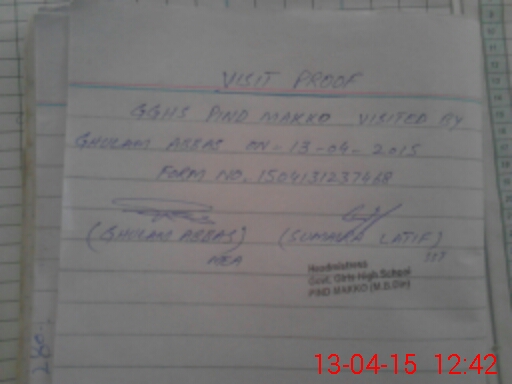 VISIT PROOF
GGHS PIND MAKKO VISITED BY
GHULAM ABBAS ON - 13-04-2015
FORM NO. 1504131237468
(GHULAM ABBAS) (SUMAIRA LATIF)
MEA
Headmistress
Govt. Girls High School
PIND MAKKO (M.B.Din)
13-04-15 12:42